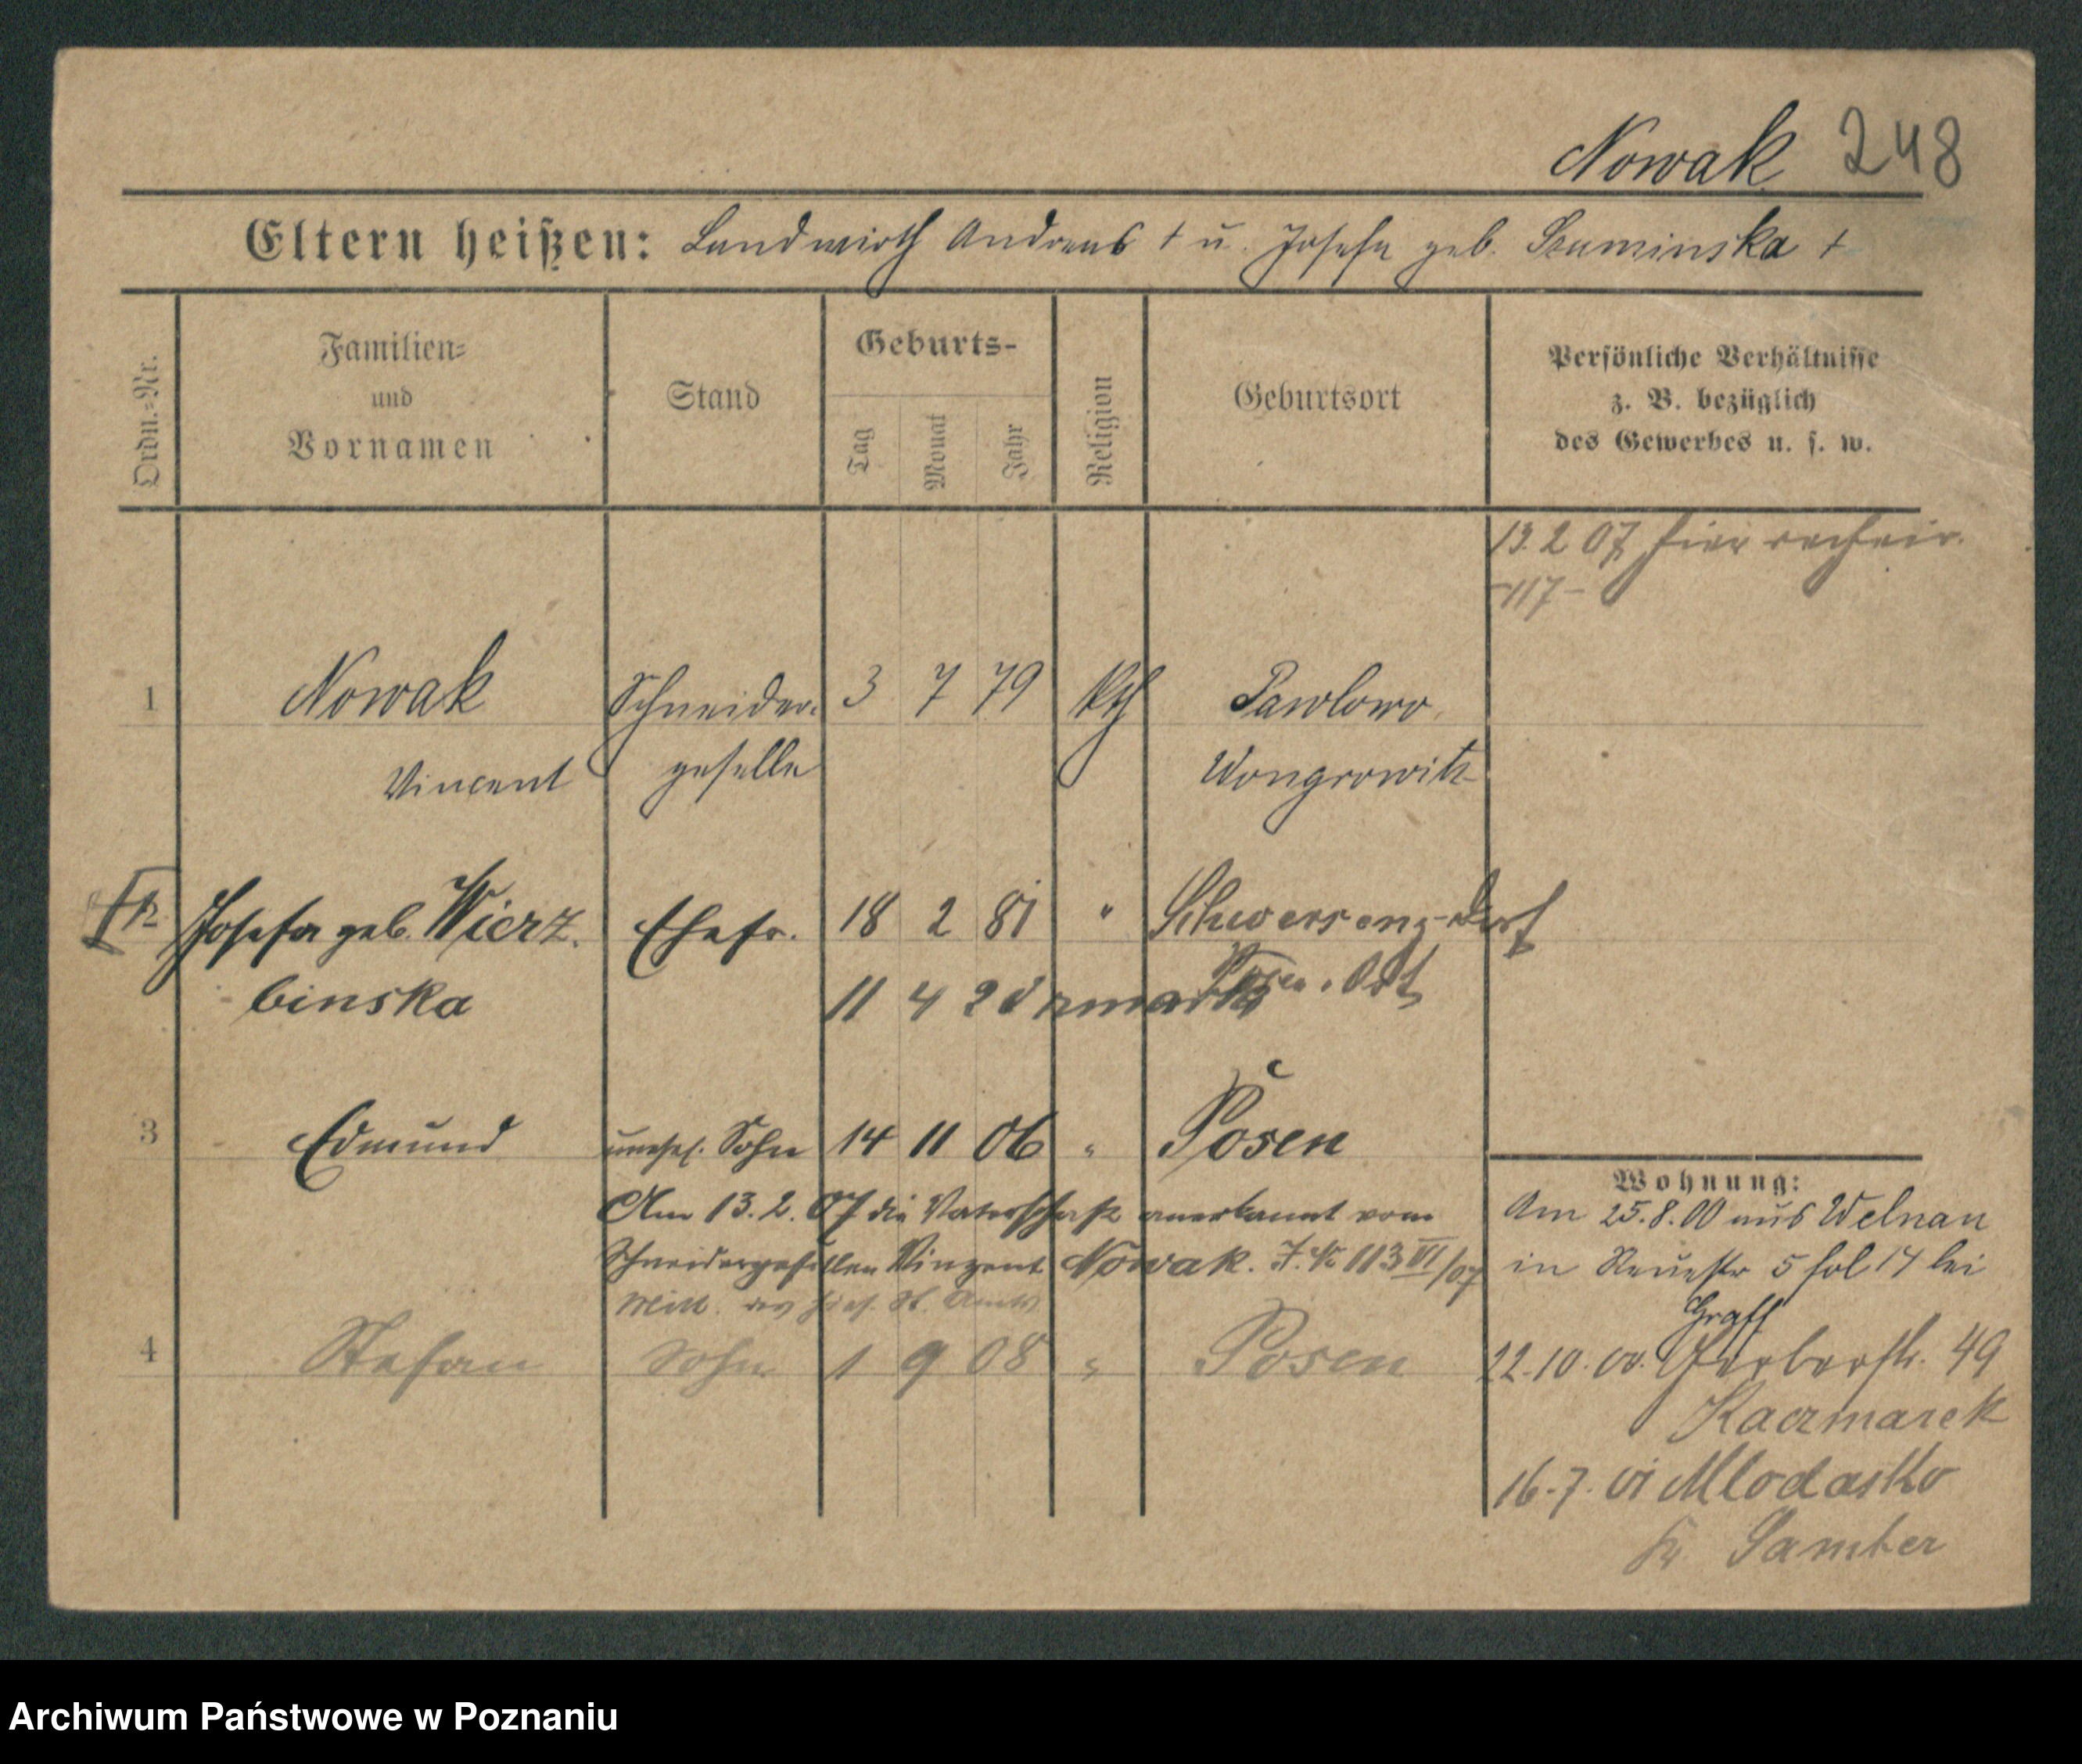 Nowak 248
Eltern heißen: Landwirth Andreas † u. Josefa geb. Szuminska †
Ordn.-Nr.
Familien-
und
Vornamen
Stand
Geburts-
Tag
Monat
Jahr
Religion
Geburtsort
Persönliche Verhältnisse
z. B. bezüglich
des Gewerbes u. s. w.
13. 2 07 hier
-117-
1 Nowak Schneider- 3 7 79 kth Pawlowo
Vincent geselle Wongrowitz
Josefa geb. Wierz- Ehefr. 18 2 81 " Schwersenz-Dorf
binska 11 4 Posen. Ost
3 Edmund unehel. Sohn 14 11 06 " Posen
Am 13. 2. 07 die Vaterschaft anerkannt vom
Schneidergesellen Vinzent Nowak. 113 VI/07
4 Stefan Sohn 1 9 08 " Posen
Wohnung:
Am 25. 8. 00 aus Welnau
in Neuestr 5 bei
Graff
22. 10. 00. Gerberstr. 49
Kaczmarek
16. 7. 01 Mlodasko
Kr. Samter
Archiwum Państwowe w Poznaniu